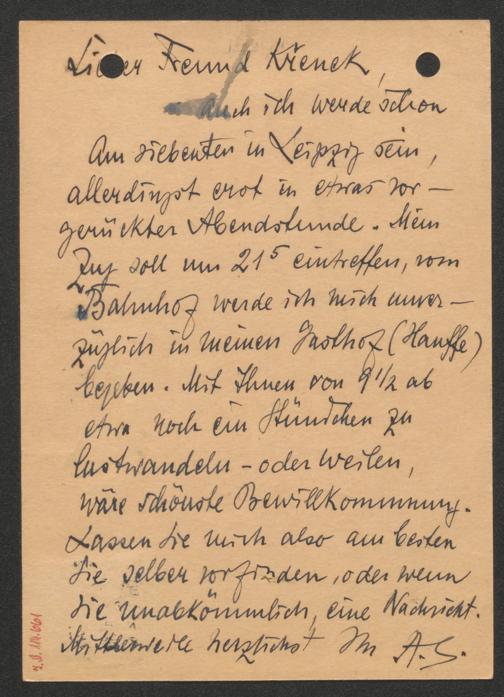 Lieber Freund Křenek,
auch ich werde schon
Am siebenten in Leipzig sein,
allerdingst erst in etwas vor-
gerückter Abendstunde. Mein
Zug soll um 21⁵ eintreffen, vom
Bahnhof werde ich mich unver-
züglich in meinen Gasthof (Hauffe)
begeben. Mit Ihnen von 9 1/2 ab
etwa noch ein Stündchen zu
lustwandeln - oder weilen,
wäre schönste Bewillkommnung.
Lassen Sie mich also am besten
Sie selber vorfinden, oder wenn
Sie unabkömmlich, eine Nachricht.
Mittlerweile herzlichst Ihr A.S.